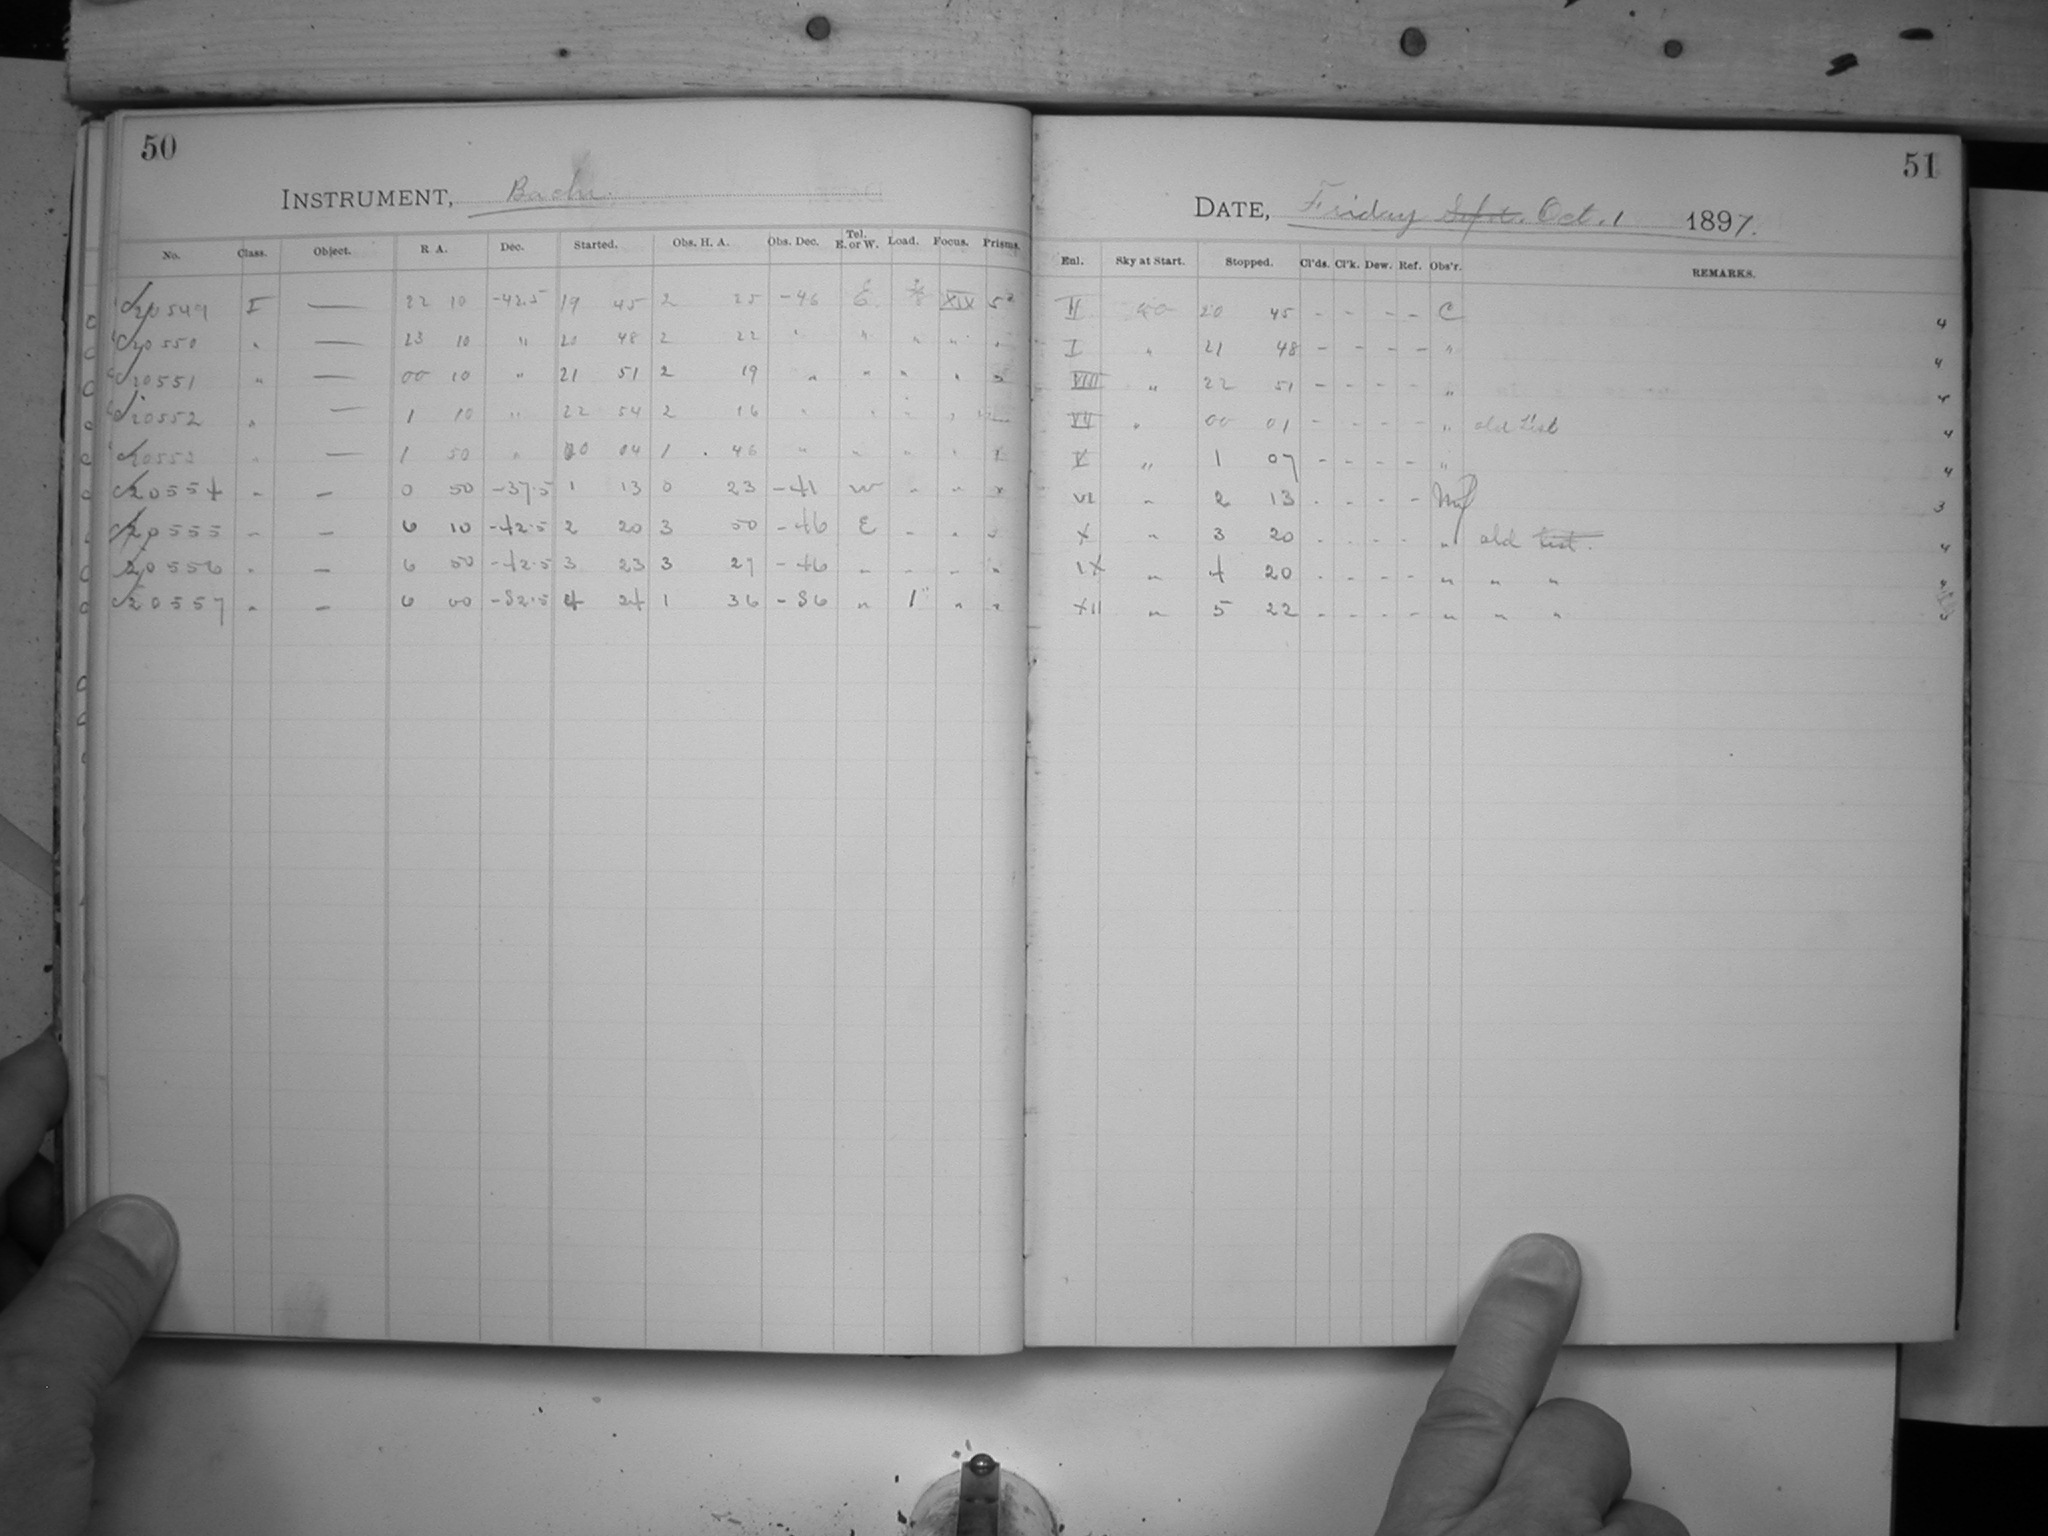 50
INSTRUMENT, Bache
No. Class. Object. R A. Dec. Started. Obs. H. A. Obs. Dec. Tel. E. or W. Load. Focus. Prisms.
20549 I — 22 10 -42.5 19 45 2 25 -46 E XIX
20550 " — 23 10 " 20 48 2 22 " " " "
20551 " — 00 10 " 21 51 2 19 " " " "
20552 " — 1 10 " 22 54 2 16 " " " "
20553 " — 1 50 " 00 04 1 46 " " " "
20554 " — 0 50 -37.5 1 13 0 23 -41 W " "
20555 " — 6 10 -42.5 2 20 3 50 -46 E " "
20556 " — 6 50 -42.5 3 23 3 27 -46 " " " "
20557 " — 6 00 -82.5 4 24 1 36 -86 " 1" " "
51
DATE, Friday Sept. Oct. 1 1897.
Enl. Sky at Start. Stopped. Cl'ds. Cl'k. Dew. Ref. Obs'r. REMARKS.
II 20 45 - - - - C 4
I " 21 48 - - - - " 4
VIII " 22 51 - - - - " 4
VII " 00 01 - - - - " old list 4
V " 1 07 - - - - " 4
VI " 2 13 - - - - 3
X " 3 20 - - - - " old list. 4
IX " 4 20 - - - - " " "
XII " 5 22 - - - - " " " 4